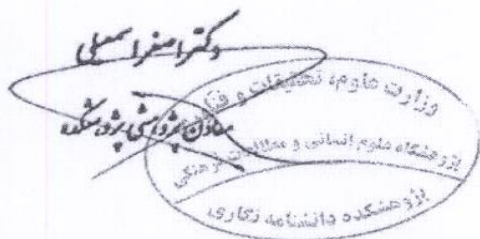 دکتر اصغر اسمعیلی
معاون پژوهشی پژوهشکده
وزارت علوم، تحقیقات و
پژوهشگاه علوم انسانی و مطالعات فرهنگی
پژوهشکده دانشنامه نگاری